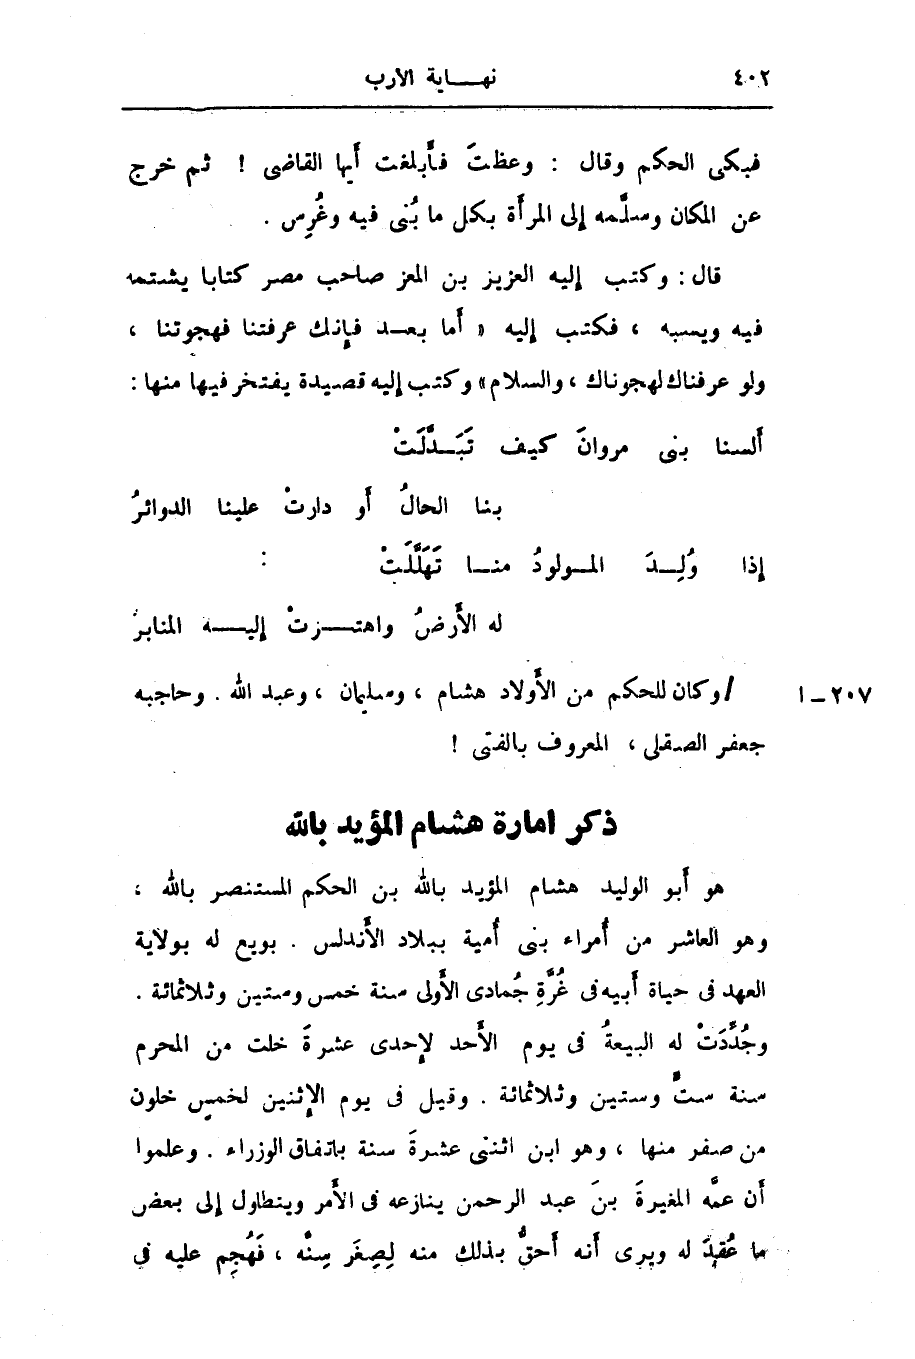 ٤٠٢ نهـــاية الأرب
فبكى الحكم وقال : وعظتَ فأَبلغت أَيها القاضى ! ثم خرج
عن المكان وسلَّمه إلى المرأَة بكل ما بُنى فيه وغُرِس .
قال : وكتب إليه العزيز بن المعز صاحب مصر كتابا يشتمه
فيه ويسبه ، فكتب إليه « أَما بعــد فإِنك عرفتنا فهجوتنا ،
ولو عرفناك لهجوناك ، والسلام » وكتب إليه قصيدة يفتخر فيها منها :
أَلسنا بنى مروانَ كيف تَبَــدَّلَتْ
بنا الحالُ أَو دارتْ علينا الدوائرُ
إذا وُلِــدَ المــولودُ منــا تَهَلَّلَتْ
له الأَرضُ واهتــــزتْ إليــــه المنابرُ
٢٠٧ ــ ا / وكان للحكم من الأَولاد هشام ، وسليمان ، وعبد الله . وحاجبه
جعفر الصقلى ، المعروف بالفتى !
ذكر امارة هشام المؤيد بالله
هو أَبو الوليد هشام المؤيد بالله بن الحكم المستنصر بالله ،
وهو العاشر من أُمراء بنى أُمية ببلاد الأَندلس . بويع له بولاية
العهد فى حياة أَبيه فى غُرَّةِ جُمادى الأَولى سنة خمس وستين وثلاثمائة .
وجُدِّدَتْ له البيعةُ فى يوم الأَحد لإِحدى عشرةَ خلت من المحرم
سنة ستٍّ وستين وثلاثمائة . وقيل فى يوم الإِثنين لخمسٍ خلون
من صفر منها ، وهو ابن اثنتى عشرةَ سنة باتفاق الوزراء . وعلموا
أَن عمَّه المغيرةَ بنَ عبد الرحمن ينازعه فى الأَمر ويتطاول إلى بعض
ما عُقِدَ له ويرى أَنه أَحقُّ بذلك منه لِصِغَر سِنَّه ، فَهُجِم عليه فى